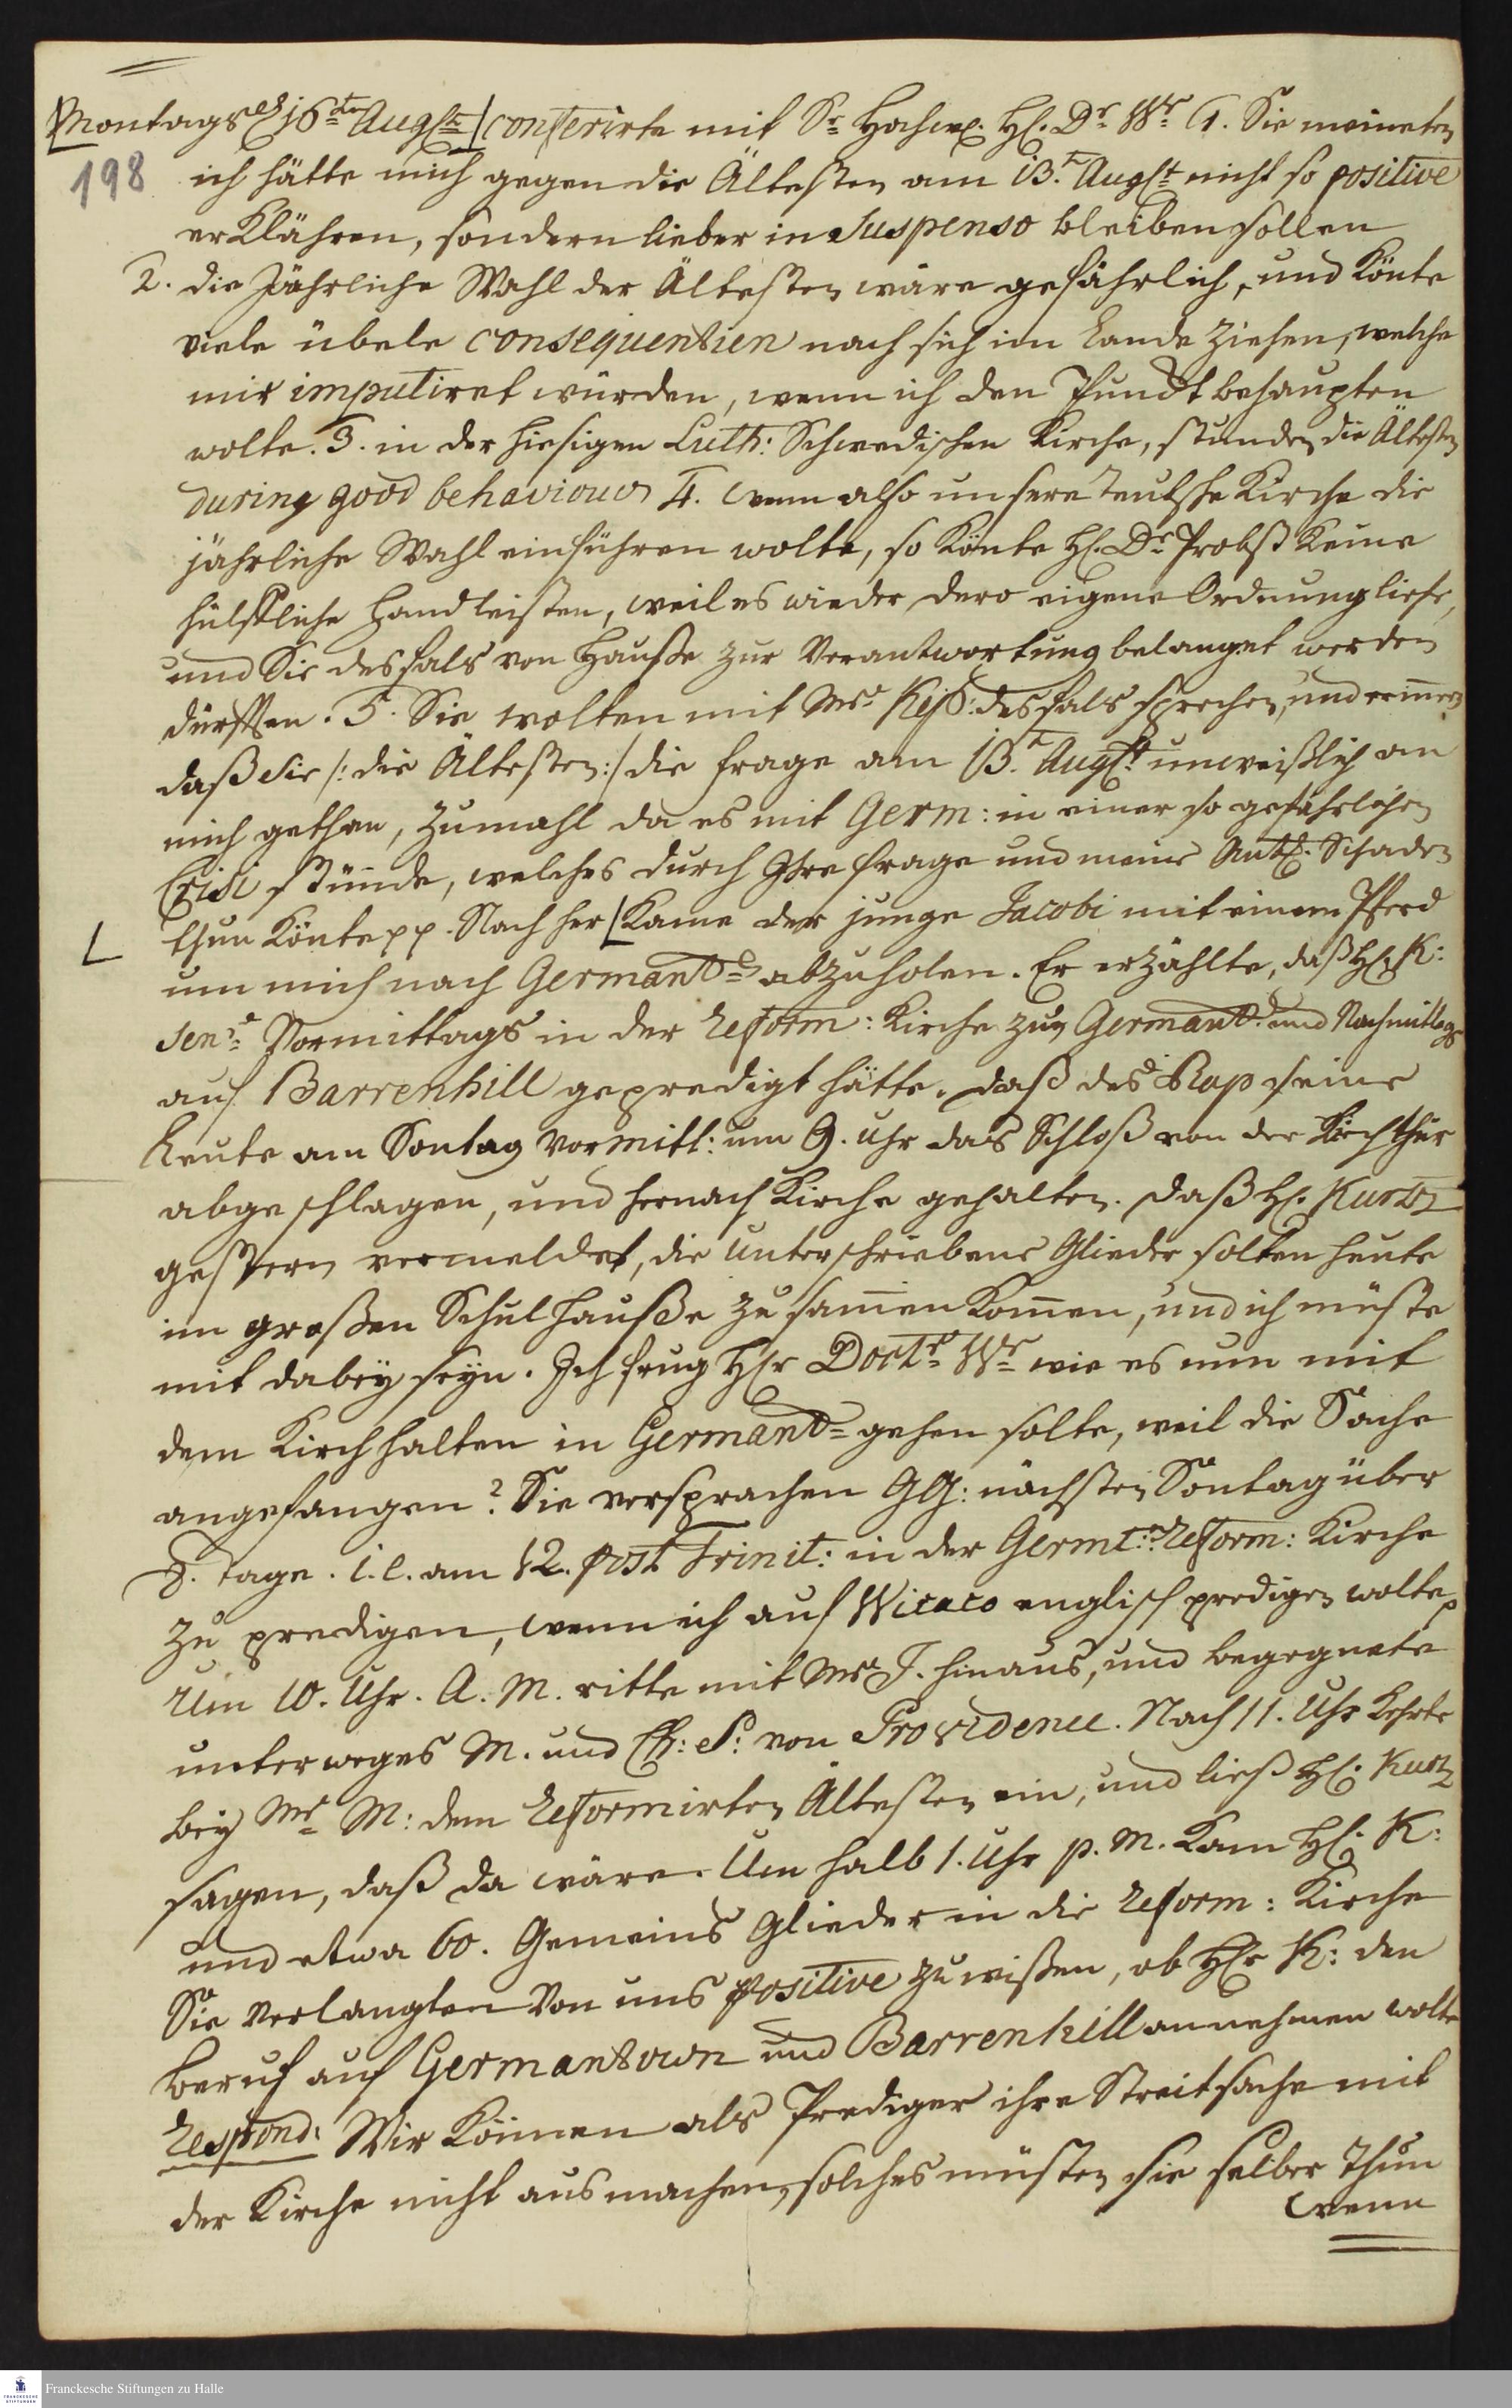 Montags d 16te Augste conferirte mit Sr Hochw. H. Dr. Wr 1. Sie meineten
198
ich hätte mich gegen die Ältesten am 13.t Augst nicht so positive
erklähren, sondern lieber in Suspenso bleiben sollen
2. die Jährliche Wahl der Ältesten wäre gefährlich, und könte
viele übele consequentien nach sich im Lande ziehen, welche
mir imputiret würden, wenn ich den Punckt behaupten
wolte. 3. in der hiesigen Luth: Schwedischen Kirche, stunden die Ältesten
during good behaviour 4. wenn also unsere teutsche Kirche die
jährliche Wahl einführen wolte, so könte H. Dr Probst keine
hülffliche Hand leisten, weil es wieder dero eigene Ordnung lieffe,
und Sie desfals von Hausse zur Verantwortung belanget werden
dürfften. 5. Sie wolten mit Mr. Kepp: desfals sprechen, und erinnern
daß Sie /: die Ältesten:/ die frage am 13.t Augst: unweißlich an
mich gethan, zumahl da es mit Germ: in einer so gefährlichen
Crisi stünde, welches durch Ihre frage und meine Antw. Schaden
thun könte pp. Nach her kame der junge Jacobi mit einem Pferd
L
um mich nach Germant. abzuholen. Er erzählte, daß H. K:
senr. Vormittags in der Reform: Kirche zu Germant. und Nachmittags
auf Barrenhill gepredigt hätte. daß des Rap seine
Leute am Sontag vormitt: um 9. uhr das Schloß von der Kirchthür
abgeschlagen, und hernach Kirche gehalten. daß H. Kurtz
gestern vermeldet, die unterschriebene Glieder solten heute
im großen Schulhausse zusamenkomen, und ich müste
mit dabey seyn. Ich frug H. Doctr Wr wie es nun mit
dem Kirchhalten in Germant gehen solte, weil die Sache
angefangen? Sie versprachen GG: nächsten Sontag über
8. Tage. i.e. am 12. post Trinit: in der Germt: Reform: Kirche
zu predigen, wenn ich auf Wicaco englisch predigen wolte
Um 10. Uhr. A. M. ritte mit Mr J. hinaus, und begegnete
unterweges M. und Ch: S: von Providence. Nach 11. Uhr kehrte
bey Mr M: dem Reformirten Ältesten ein, und ließ H. Kurtz
sagen, daß da wäre. Um halb 1. Uhr p. M. kam H. K:
und etwa 60. Gemeins Glieder in die Reform: Kirche
Sie verlangten von uns positive zu wißen, ob H. K: den
Beruf auf Germantown und Barrenhill annehmen wolte
Respond: Wir können als Prediger ihre Streitsache mit
der Kirche nicht ausmachen, solches müsten sie selber thun
wenn
Franckesche Stiftungen zu Halle